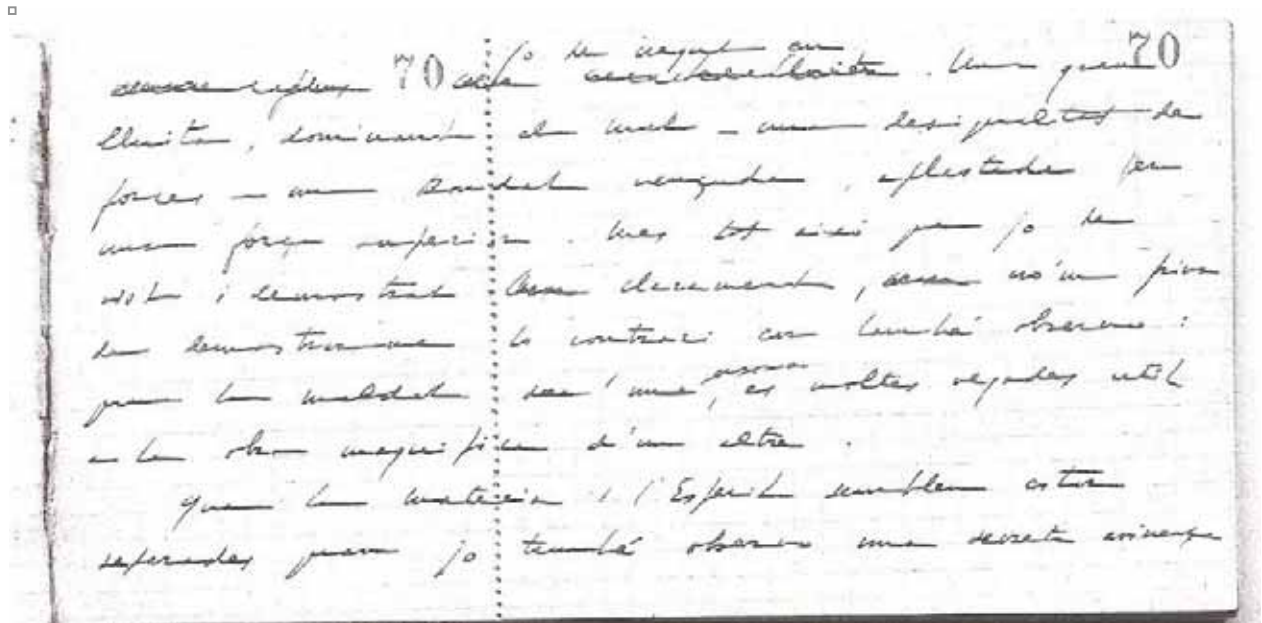 70 jo he vegut en 70
lluita, dominant el mal – una desigualtat de
forces – una Bondat vençuda, aplastada per
una força superior. Mes tot aixi que jo he
vist i demostrat clarament, no'm priva
de demostrar-me lo contrari com també observar:
que la maldat d'una, es moltes vegades util
a la obra magnifica d'un altre.
Que la materia i l'Esperit semblen estar
separades quan jo també observo una secreta